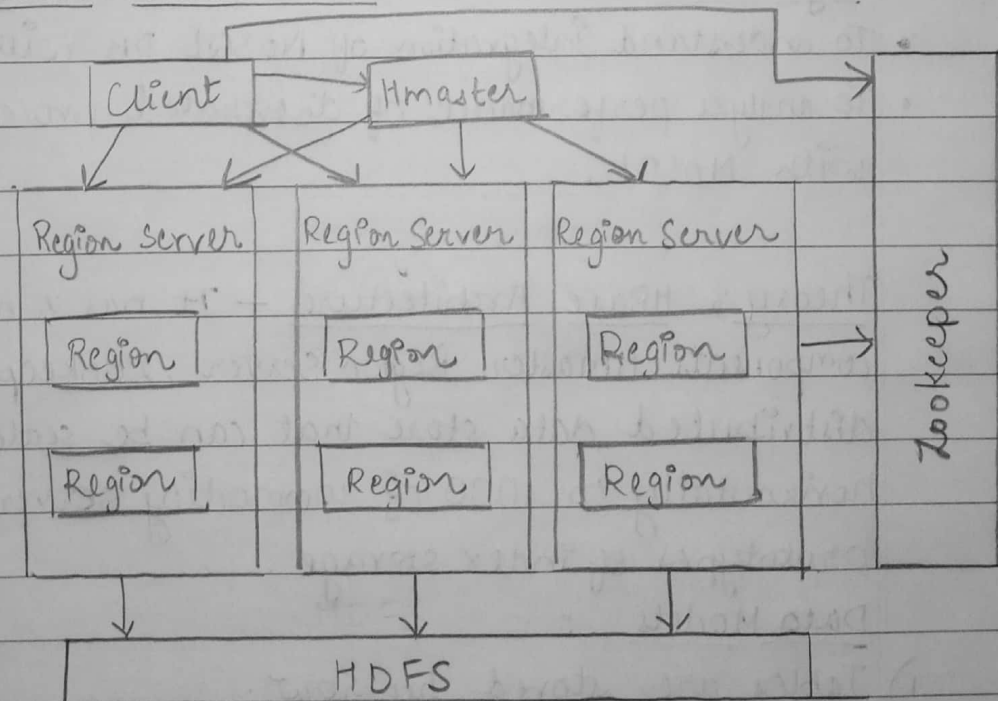 Client
Hmaster
Region Server
Region Server
Region Server
Region
Region
Region
Region
Region
Region
Zookeeper
HDFS